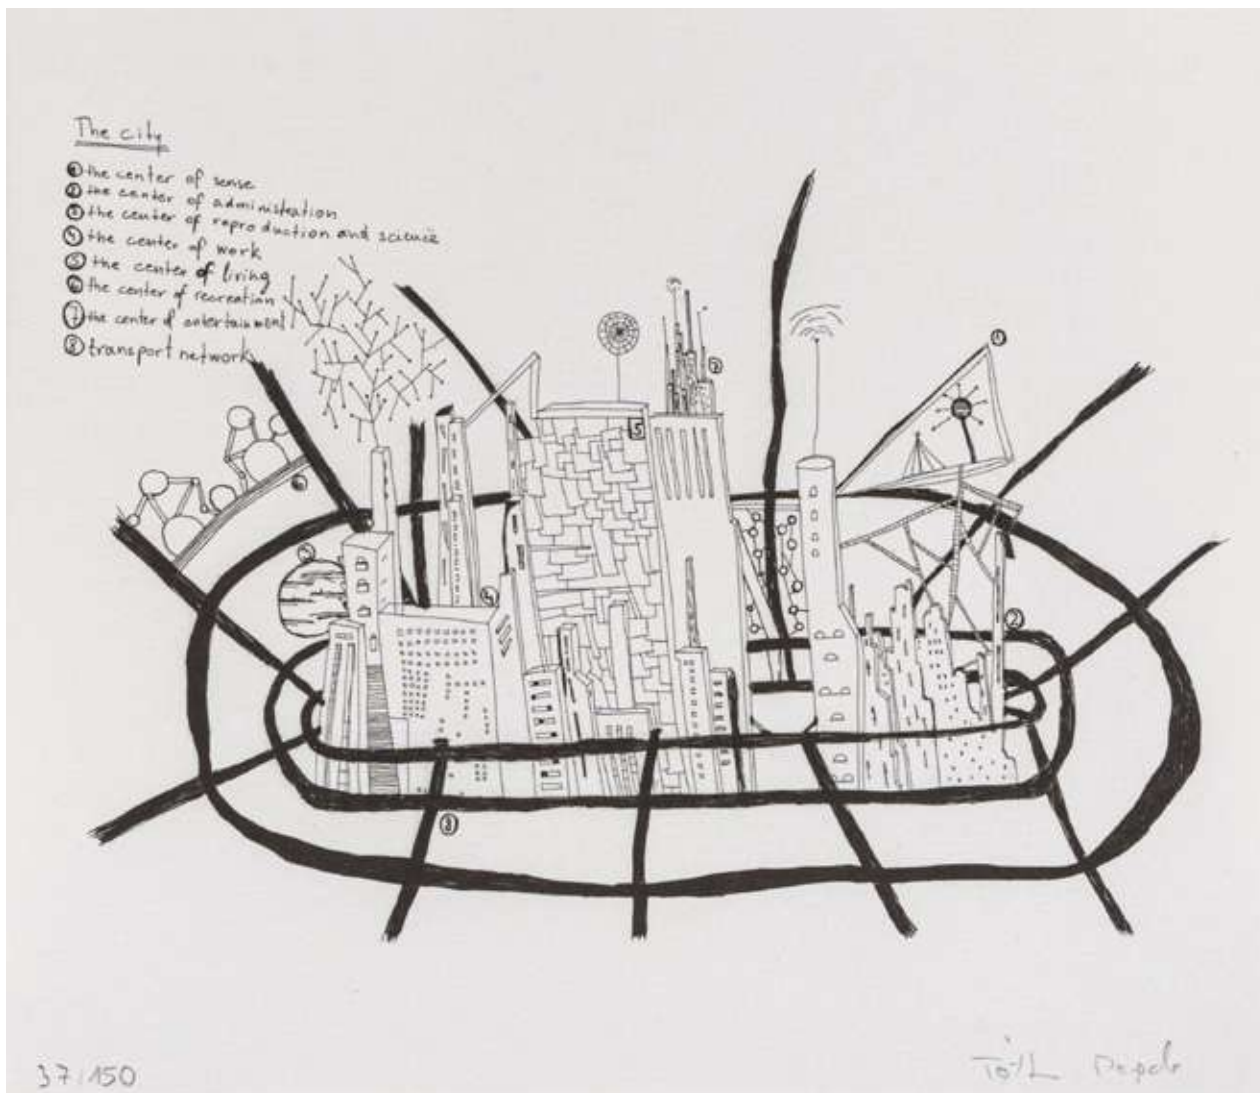 The city
① the center of sense
② the center of administration
③ the center of reproduction and science
④ the center of work
⑤ the center of living
⑥ the center of recreation
⑦ the center of entertainment
⑧ transport network
1
5
6
4
2
8
37/150